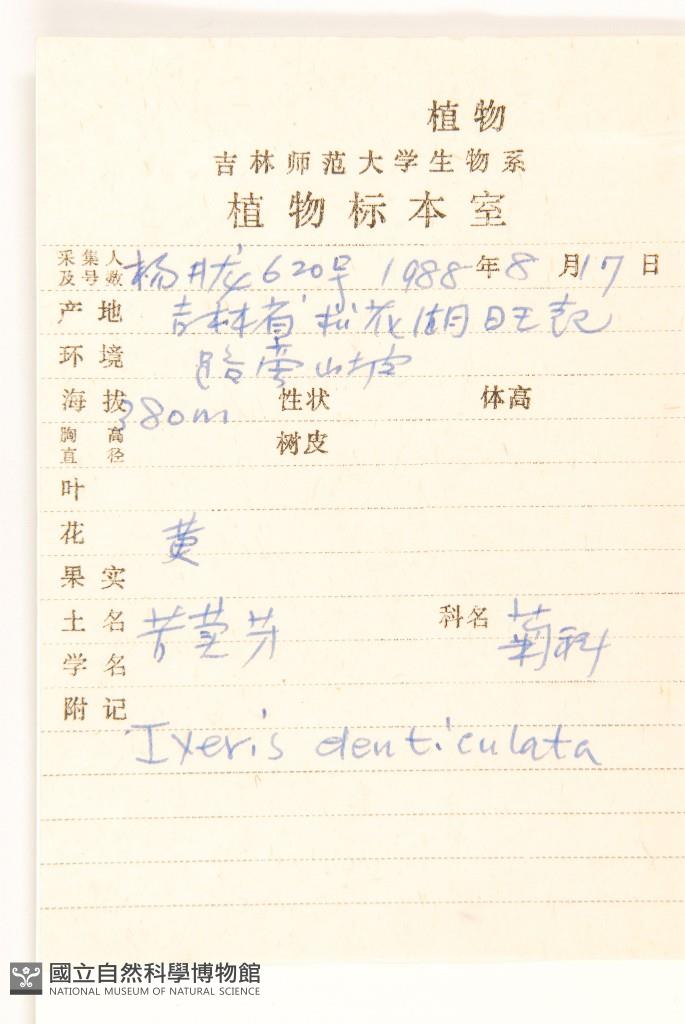 植物
吉林师范大学生物系
植物标本室
采集人及号数 杨 620号 1988年8月17日
产地 吉林省松花湖
环境 路旁山坡
海拔 380m 性状 体高
胸高直径 树皮
叶
花 黄
果实
土名 苦荬芽 科名 菊科
学名
附记
Ixeris denticulata
國立自然科學博物館
NATIONAL MUSEUM OF NATURAL SCIENCE